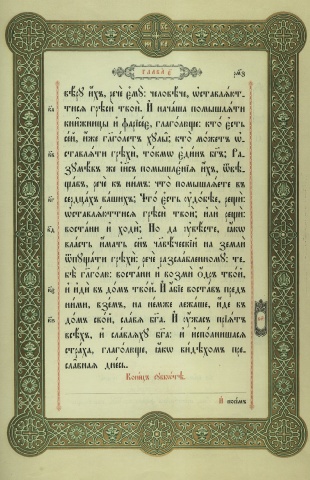 ГЛАВА Є҃
рм҃з
вѣ́рꙋ и҆́хъ, речѐ є҆мꙋ̀: человѣ́че, ѡ҆ставлѧ́ют-
ка҃ тисѧ грѣсѝ твоѝ. И҆ нача́ша помышлѧ́ти
кни́жницы и҆ фарїсе́є, глаго́люще: кто̀ є҆́сть
се́й, и҆́же глаго́летъ хꙋлы̑; кто̀ мо́жетъ ѡ҆-
ставлѧ́ти грѣхѝ, то́кмѡ є҆ди́нъ бг҃ъ; Ра-
кв҃ зꙋмѣ́въ же і҆и҃съ помышлє́нїѧ и҆́хъ, ѿвѣ-
ща́въ, речѐ къ ни̑мъ: что̀ помышлѧ́ете въ
кг҃ сердца́хъ ва́шихъ; Что̀ є҆́сть ᲂу҆до́бѣе, рещѝ:
ѡ҆ставлѧ́ютсѧ тѝ грѣсѝ твоѝ; и҆лѝ рещѝ:
кд҃ воста́ни и҆ ходѝ; Но да ᲂу҆вѣ́сте, ꙗ҆́кѡ
вла́сть и҆́мать сн҃ъ чл҃вѣ́ческїй на землѝ
ѿпꙋща́ти грѣхѝ: речѐ разсла́бленномꙋ: те-
бѣ̀ гл҃ю: воста́ни и҆ возмѝ ѻ҆́дръ тво́й,
ке҃ и҆ и҆дѝ въ до́мъ тво́й. И҆ а҆́бїе воста́въ пред̾
ни́ми, взе́мъ, на не́мже лежа́ше, и҆́де въ
кѕ҃ до́мъ сво́й, сла́вѧ бг҃а. И҆ ᲂу҆́жасъ прїѧ́тъ
всѣ́хъ, и҆ сла́влѧхꙋ бг҃а: и҆ и҆спо́лнишасѧ
стра́ха, глаго́люще, ꙗ҆́кѡ ви́дѣхомъ пре-
сла́внаѧ дне́сь.
Коне́цъ сꙋббѡ́тѣ.
И҆ по си́хъ